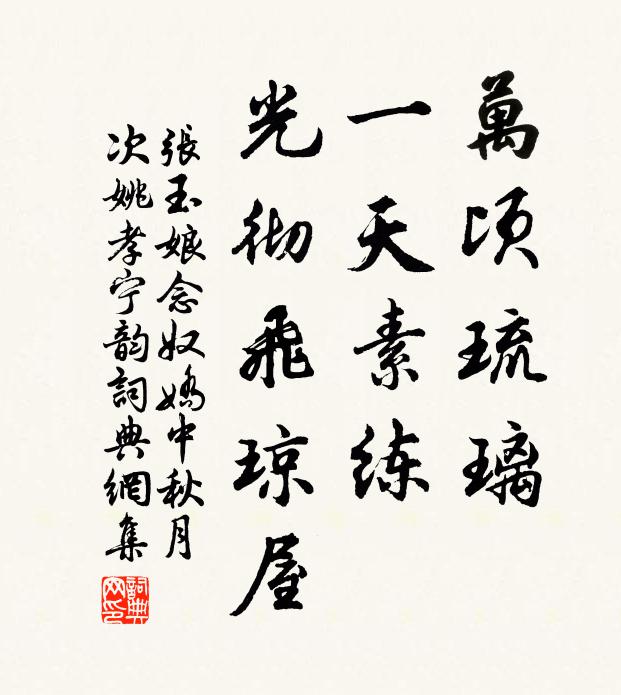 萬頃琉璃
一天素练
光彻飛琼屋
張玉娘念奴嬌中秋月
次姚孝宁韵詞典網集
詞典
网印